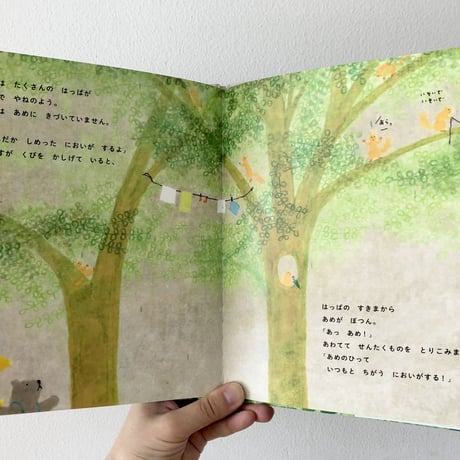 は たくさんの はっぱが
で やねのよう。
は あめに きづいていません。
だか しめった においが するよ」
すが くびを かしげて いると、
あら。
いそいで
いそいで
はっぱの すきまから
あめが ぽつん。
「あっ あめ!」
あわてて せんたくものを とりこみま
「あめのひって
いつもと ちがう においがする!」